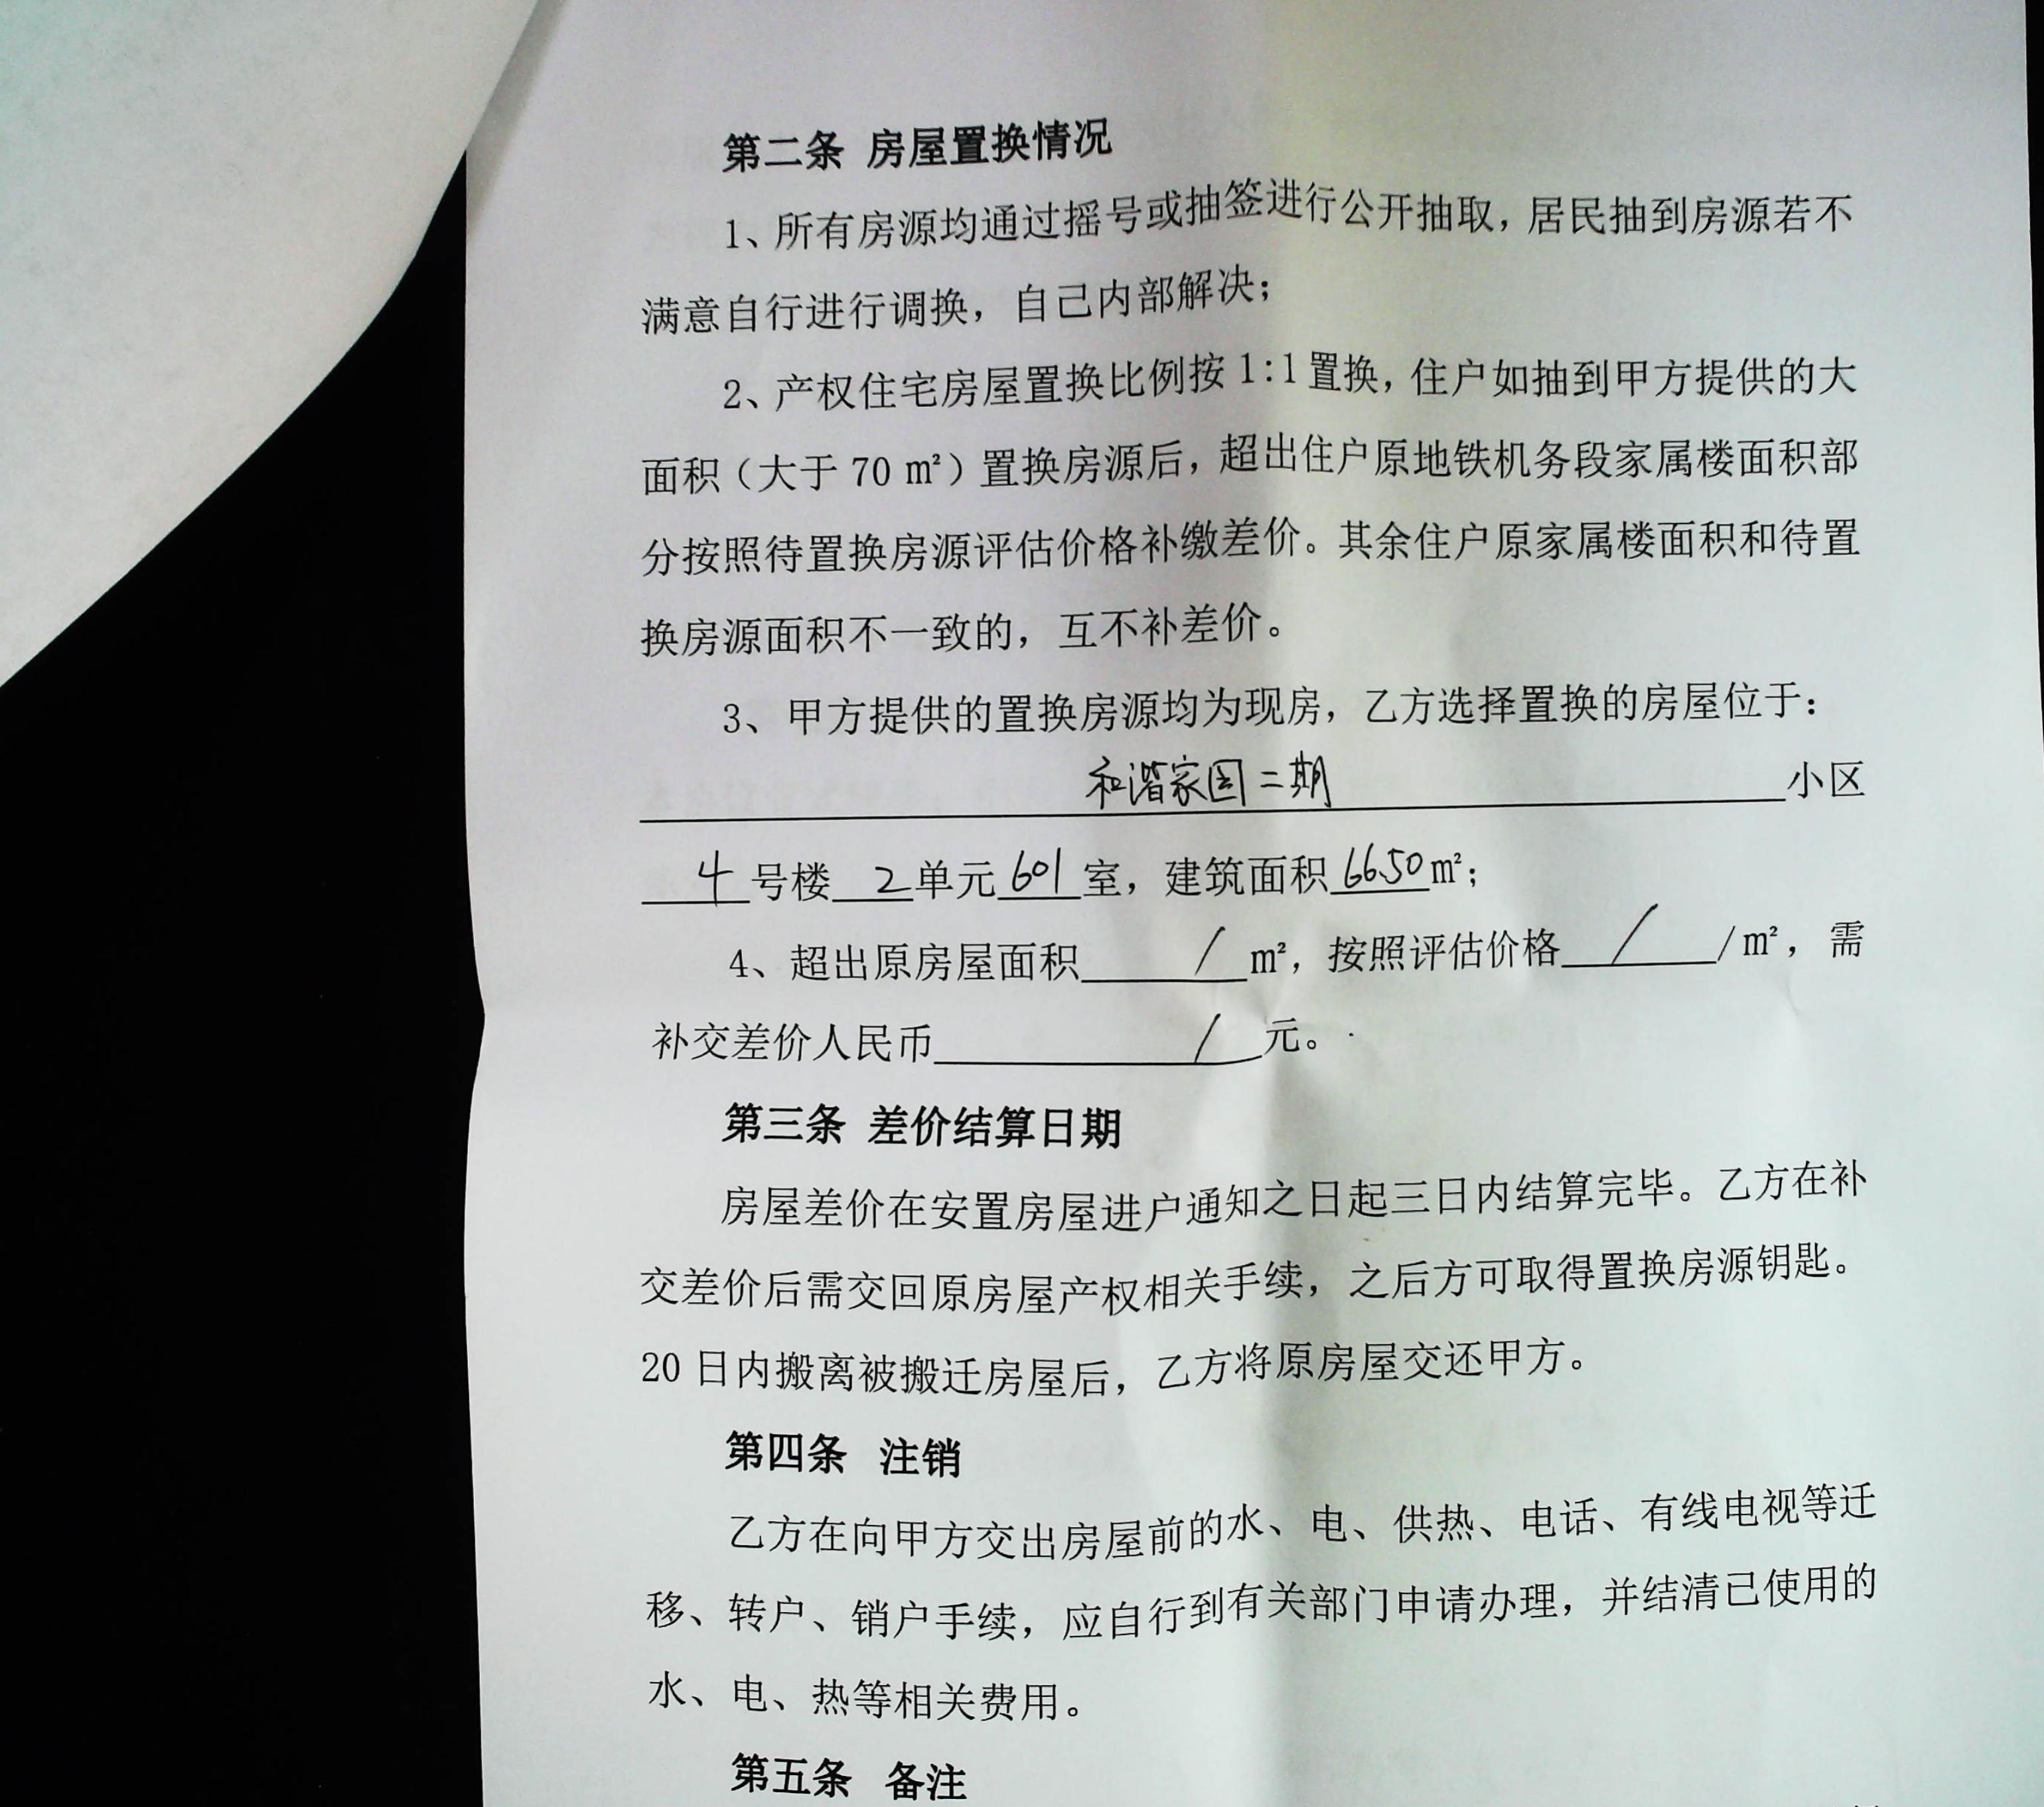 第二条 房屋置换情况
1、所有房源均通过摇号或抽签进行公开抽取，居民抽到房源若不
满意自行进行调换，自己内部解决；
2、产权住宅房屋置换比例按1:1置换，住户如抽到甲方提供的大
面积（大于70㎡）置换房源后，超出住户原地铁机务段家属楼面积部
分按照待置换房源评估价格补缴差价。其余住户原家属楼面积和待置
换房源面积不一致的，互不补差价。
3、甲方提供的置换房源均为现房，乙方选择置换的房屋位于：
和谐家园二期小区
4号楼2单元601室，建筑面积66.50㎡；
4、超出原房屋面积/㎡，按照评估价格/ /㎡，需
补交差价人民币/元。
第三条 差价结算日期
房屋差价在安置房屋进户通知之日起三日内结算完毕。乙方在补
交差价后需交回原房屋产权相关手续，之后方可取得置换房源钥匙。
20日内搬离被搬迁房屋后，乙方将原房屋交还甲方。
第四条 注销
乙方在向甲方交出房屋前的水、电、供热、电话、有线电视等迁
移、转户、销户手续，应自行到有关部门申请办理，并结清已使用的
水、电、热等相关费用。
第五条 备注